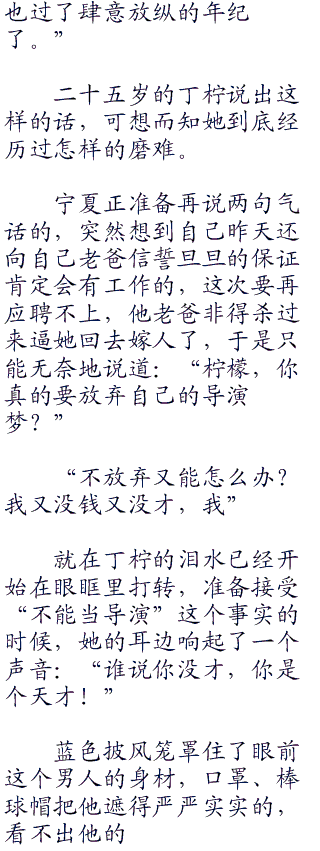 也过了肆意放纵的年纪
了。”
二十五岁的丁柠说出这
样的话，可想而知她到底经
历过怎样的磨难。
宁夏正准备再说两句气
话的，突然想到自己昨天还
向自己老爸信誓旦旦的保证
肯定会有工作的，这次要再
应聘不上，他老爸非得杀过
来逼她回去嫁人了，于是只
能无奈地说道：“柠檬，你
真的要放弃自己的导演
梦？”
“不放弃又能怎么办？
我又没钱又没才，我”
就在丁柠的泪水已经开
始在眼眶里打转，准备接受
“不能当导演”这个事实的
时候，她的耳边响起了一个
声音：“谁说你没才，你是
个天才！”
蓝色披风笼罩住了眼前
这个男人的身材，口罩、棒
球帽把他遮得严严实实的，
看不出他的